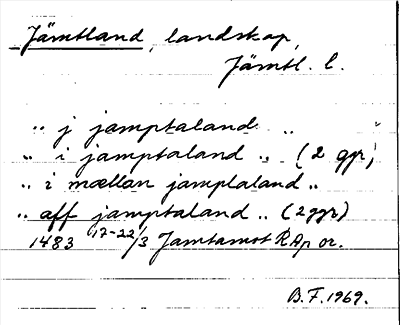 Jämtland, landskap,
Jämtl. l.
.. j jamptaland ..
.. i jamptaland .. (2 ggr)
.. i mællan jamptaland ..
.. aff jamptaland .. (2 ggr)
1483 17-22/3 Jämtamot RAp or.
B.F. 1969.